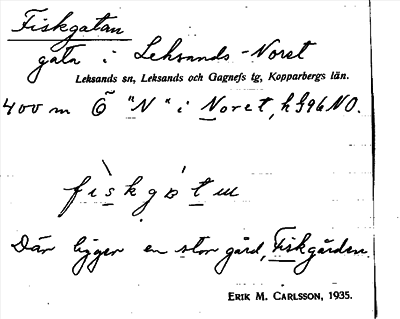 Fiskgatan
gata i Leksands-Noret
Leksands sn, Leksands och Gagnefs tg, Kopparbergs län.
400 m Ö "N" i Noret, k 996 NO.
Där ligger en stor gård, Fiskgården.
ERIK M. CARLSSON, 1935.